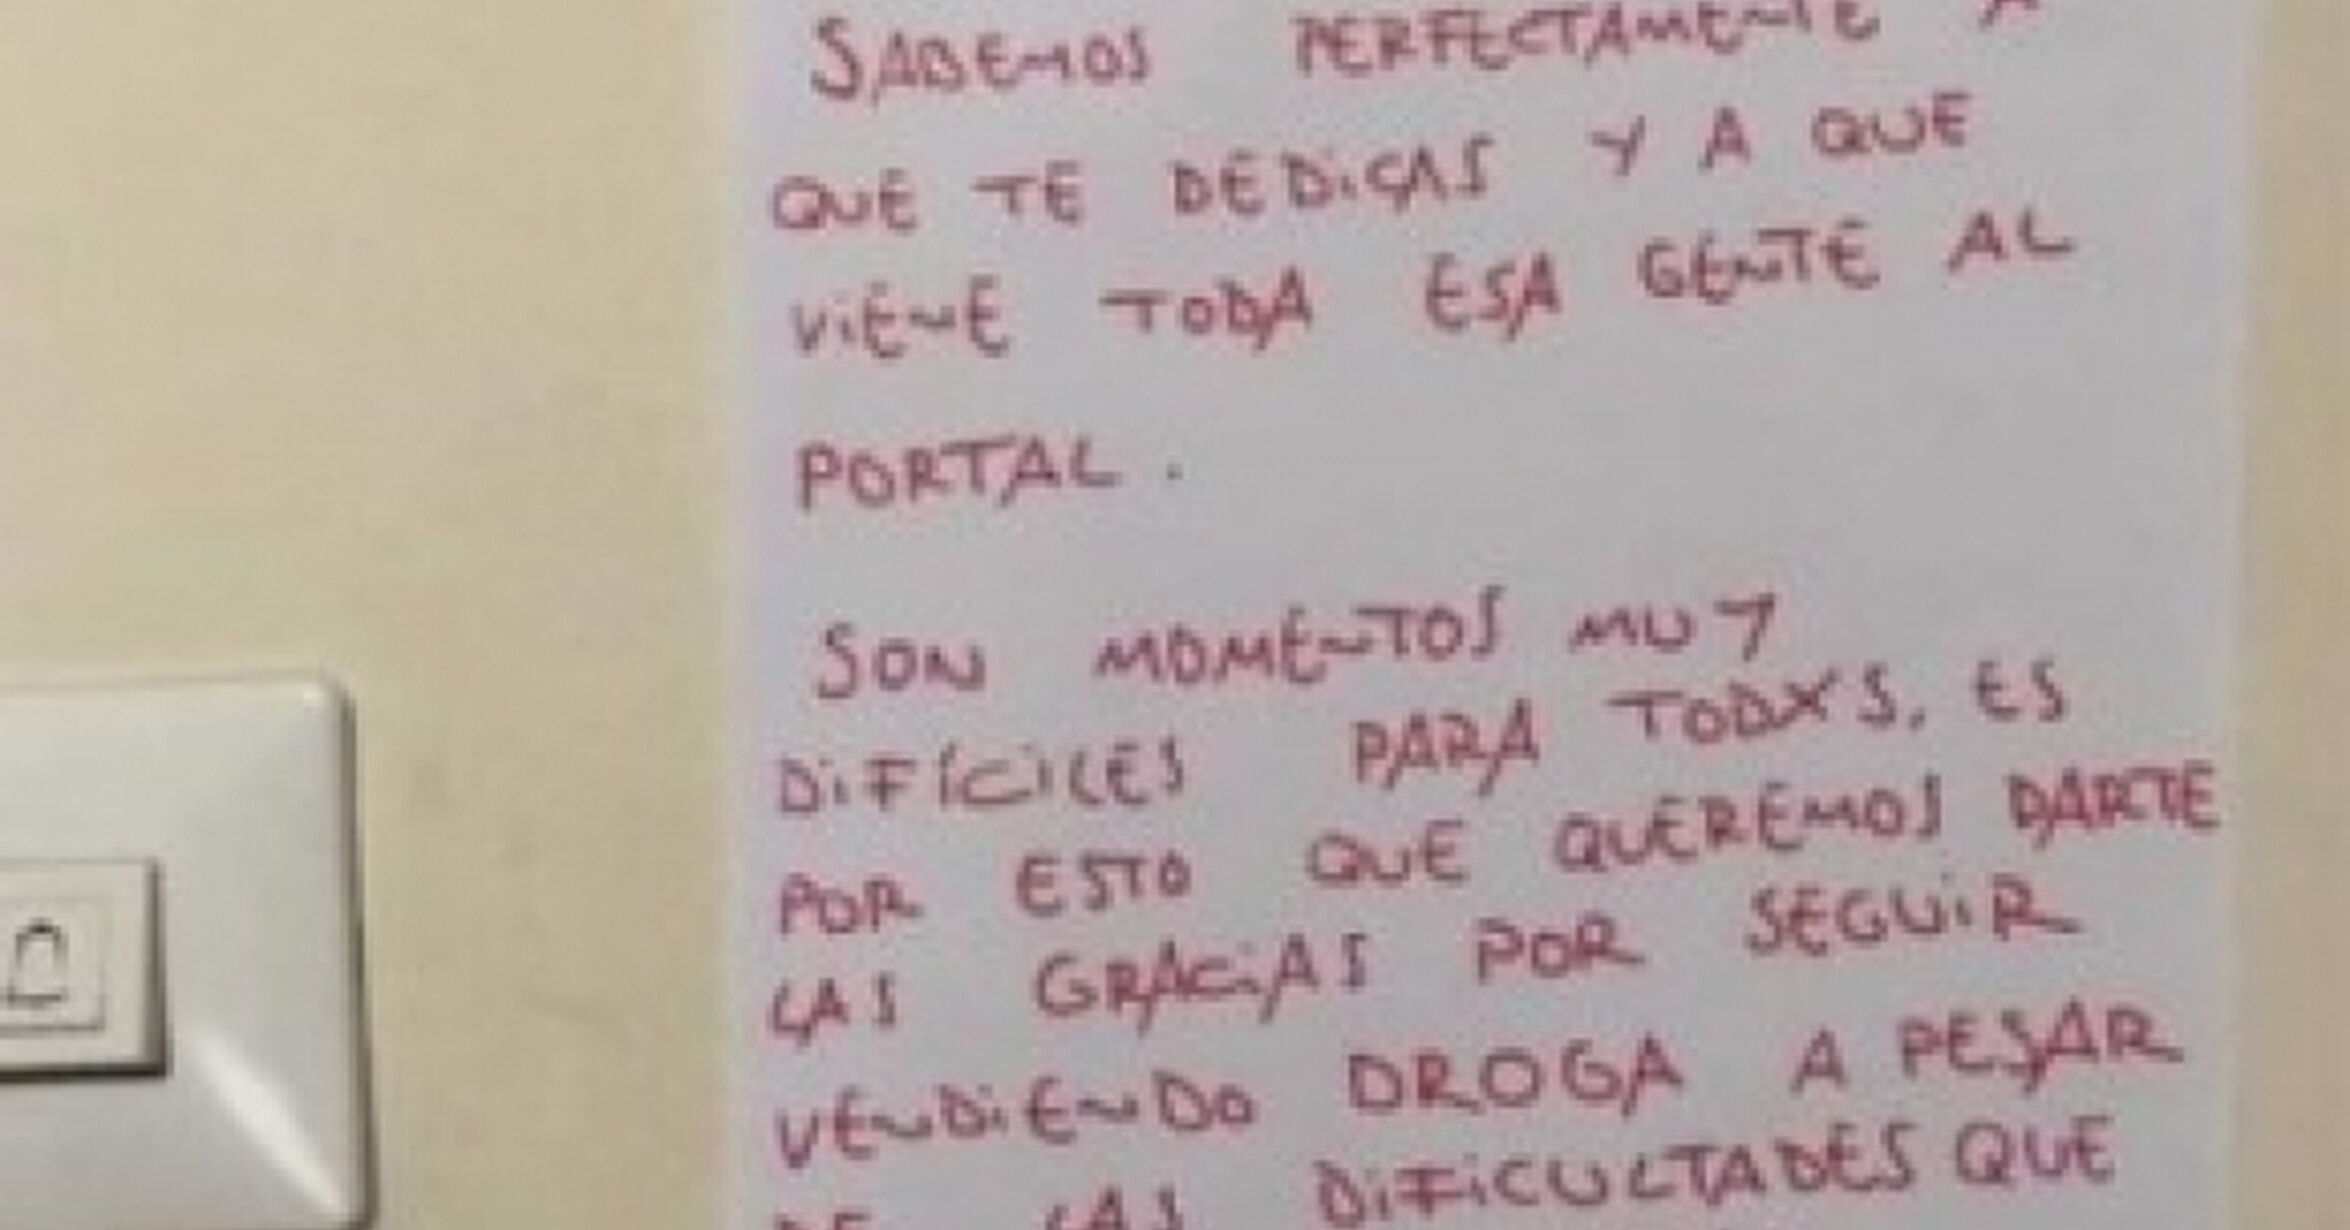 SABEMOS PERFECTAMENTE A
QUE TE DEDICAS Y A QUE
VIENE TODA ESA GENTE AL
PORTAL.
SON MOMENTOS MUY
DIFÍCILES PARA TODXS, ES
POR ESTO QUE QUEREMOS DARTE
LAS GRACIAS POR SEGUIR
VENDIENDO DROGA A PESAR
DE LAS DIFICULTADES QUE